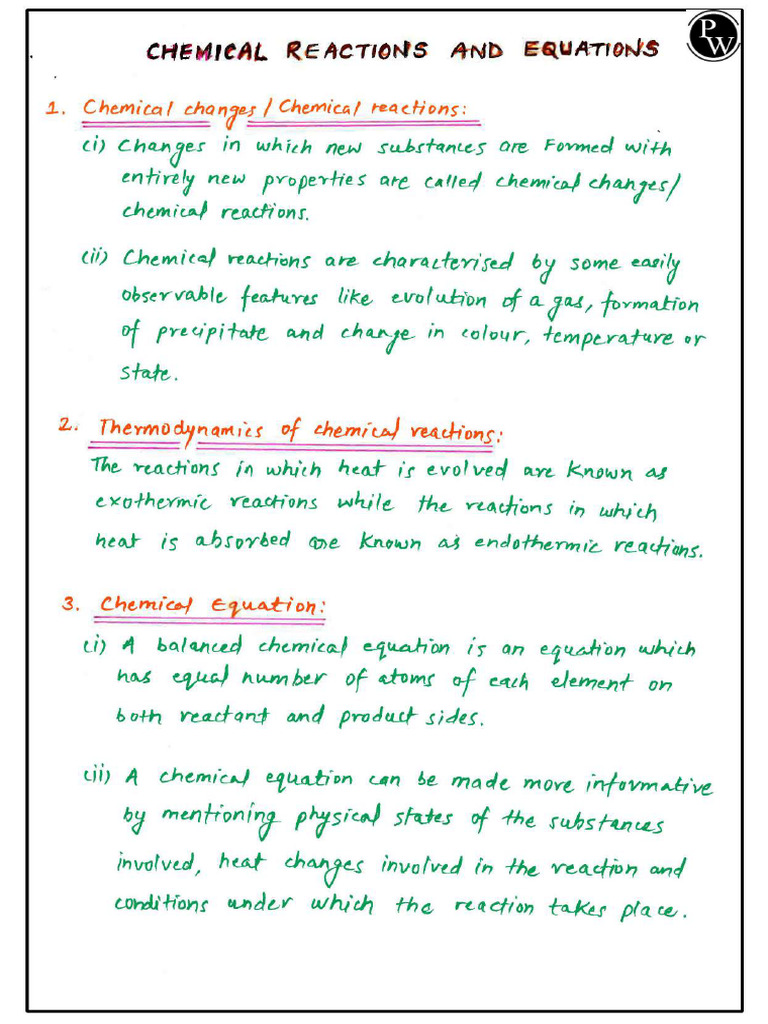 PW
CHEMICAL REACTIONS AND EQUATIONS
1. Chemical changes / Chemical reactions:
(i) Changes in which new substances are Formed with
entirely new properties are called chemical changes/
chemical reactions.
(ii) Chemical reactions are characterised by some easily
observable features like evolution of a gas, formation
of precipitate and change in colour, temperature or
state.
2. Thermodynamics of chemical reactions:
The reactions in which heat is evolved are known as
exothermic reactions while the reactions in which
heat is absorbed are known as endothermic reactions.
3. Chemical Equation:
(i) A balanced chemical equation is an equation which
has equal number of atoms of each element on
both reactant and product sides.
(ii) A chemical equation can be made more informative
by mentioning physical states of the substances
involved, heat changes involved in the reaction and
conditions under which the reaction takes place.